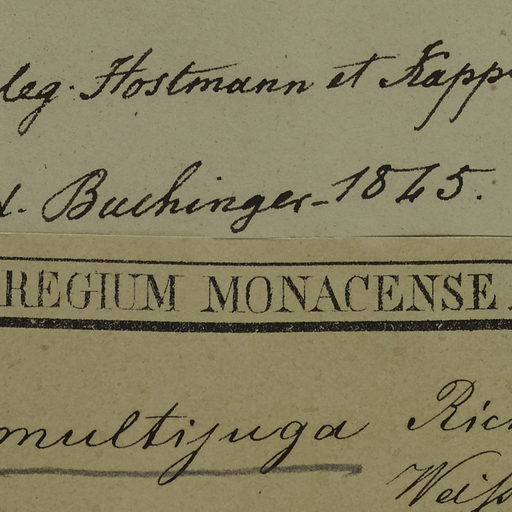 leg. Hostmann et Kapp
d. Buchinger-1845.
REGIUM MONACENSE.
multijuga Rich
Weiß